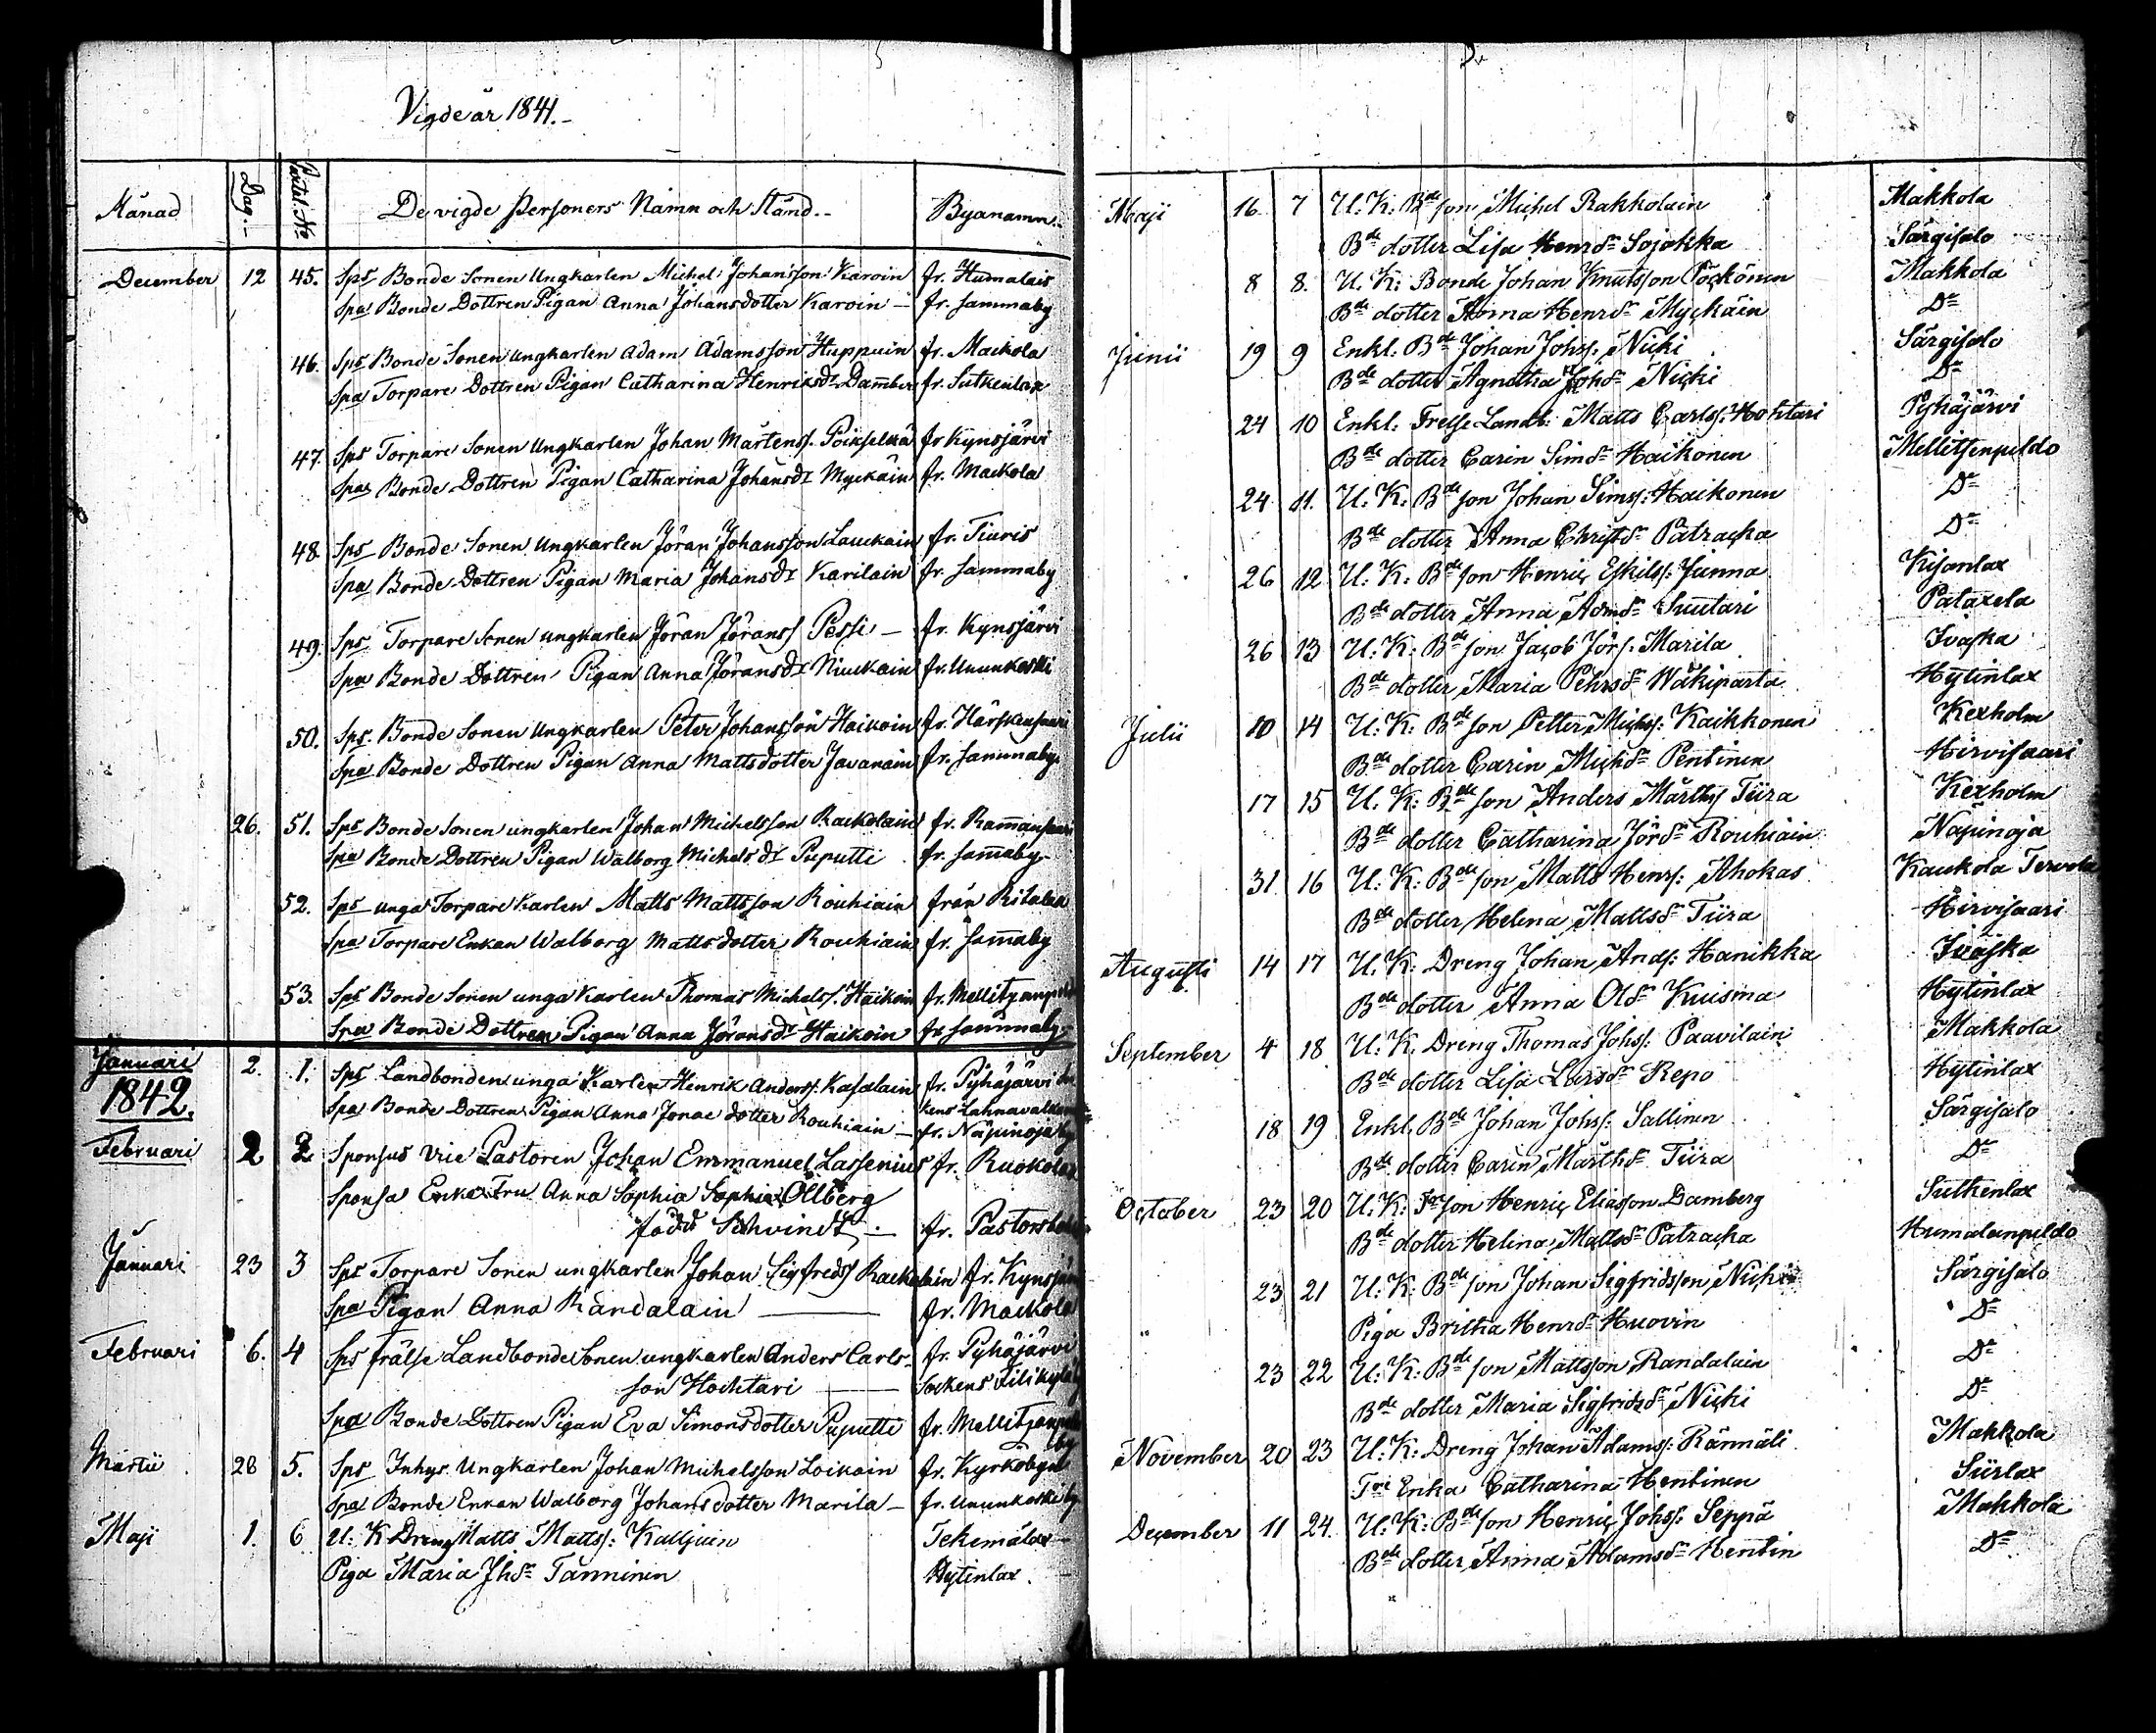 Vigde år 1841.-
Månad Dag.- Partial. No De vigde Personers Namn och Stånd.- Byanamn.-
December 12 45. Sps Bonde Sonen Ungkarlen Michel Johansson Karoin fr. Humalais
Spa Bonde Dottren Pigan Anna Johansdotter Karoin — fr. Sammaby
46. Sps Bonde Sonen ungkarlen Adam Adamsson Huppuin fr. Mackola
Spa Torpare Dottren Pigan Catharina Henriksdr Damber fr. Sutkenlax
47. Sps Torpare Sonen Ungkarlen Johan Mårtenss. Poikselkä fr Kynsjärvi
Spa Bonde Dottren Pigan Catharina Johansdr Myckäin fr. Mackola
48. Sps Bonde Sonen Ungkarlen Jöran Johansson Lauckain fr. Tiuris
Spa Bonde Dottren Pigan Maria Johansdr Karilain fr. Sammaby
49. Sps Torpare Sonen ungkarlen Jöran Jöranss Pessi — fr. Kynsjärvi
Spa Bonde Dottren Pigan Anna Jöransdr Niuckain fr. Ununkoski
50. Sps. Bonde Sonen Ungkarlen Peter Johansson Haikoin fr. Härskensaari
Spa Bonde Dottren Pigan Anna Mattsdotter Javanain fr. Sammaby.
26. 51. Sps Bonde Sonen ungkarlen Johan Michelsson Rackolain fr. Ramansaari
Spa Bonde Dottren Pigan Walborg Michelsdr Puputti fr. Samaby-
52. Sps unga Torpare Karlen Matts Mattsson Rouhiain från Ritalax
Spa Torpare Enkan Walborg Mattsdotter Rouhiain fr. Samaby
53. Sps Bonde Sonen unga Karlen Thomas Michelss. Haikoin
Spa Bonde Dottren Pigan Anna Jöransdr Haikoin fr Sammaby.
Januari 2. 1. Sps Landbonden unga Karlen Henrik Anderss. Kasalain fr. Pyhäjärvi
1842. Spa Bonde Dottren Pigan Anna Jonae dotter Rouhiain — fr. Näpinoja by
Februari 2 2 Sponsus Vice Pastoren Johan Emmanuel Lassenius fr. Ruokolax
Sponsa Enke Fru Anna Sophia Sophia Ollberg
född Schvindt — fr. Pastors
Januari 23 3 Sps Torpare Sonen ungkarlen Johan Sigfredss Rackolain fr. Kynsjärvi
Spa Pigan Anna Randalain — fr. Mackola
Februari 6. 4 Sps frälse Landbonde Sonen ungkarlen Anders Carls- fr. Pyhäjärvi
son Hochtari — Sockens
Spa Bonde Dottren Pigan Eva Simonsdotter Puputti fr.
by
Martii 28 5. Sps Inhys. Ungkarlen Johan Michelsson Loikain fr. Kyrkobyn
Spa Bonde Enkan Walborg Johansdotter Marila — fr. Ununkoski by
Maji 1. 6 U: K Dreng Matts Mattss: Kalljuin Tekemälax
Piga Maria Jhdr Tanninen Hytinlax.
Maji 16 7 U: K: Bde son Michel Rakkolain Makkola
Bde dotter Lisa Henrdr Sojakka Särgisalo
8 8. U. K: Bonde Johan Knutsson Pöckönen Makkola
Bde dotter Anna Henrdr Myckäin Do
Junii 19 9 Enkl: Bde Johan Johss: Nicki Särgisalo
Bde dotter Agnetha Johdr Nicki Do
24 10 Enkl: Frelse Landb: Matts Carlss: Hohtari Pyhäjärvi
Bde dotter Carin Simdr Haikonen Mellitsenpeldo
24 11. U: K: Bde son Johan Simss: Haikonen Do
Bde dotter Anna Christdr Patracka Do
26 12 U: K: Bde son Henric Eskilss: Junna Kisanlax
Bde dotter Anna Admdr Suutari Pataxela
26 13 U: K: Bde son Jacob Jörs: Marila Ivaska
Bde dotter Maria Pehrsdr Wäkiparta Hytinlax
Julii 10 14 U: K: Bde son Petter Michss: Kaikkonen Kexholm
Bde dotter Carin Michdr Pentinen Hirvisaari
17 15 U: K: Bde son Anders Mårthss Tiira Kexholm
Bde dotter Catharina Jördr Rouhiain Näpinoja
31 16 U: K: Bde son Matts Henrs: Ahokas Kaukola Tervola
Bde dotter Helena Mattsdr Tiira Hirvisaari
Augusti 14 17 U: K: Dreng Johan Ands: Hanikka Ivaska
Bde dotter Anna Oldr Kuisma Hytinlax
September 4 18 U: K. Dreng Thomas Johss: Paavilain Makkola
Bde dotter Lisa Larsdr Repo Hytinlax
18 19 Enkl. Bde Johan Johss: Sallinen Särgisalo
Bde dotter Carin Mårthdr Tiira Do
October 23 20 U: K: Tre son Henric Eliasson Damberg Sutkenlax
Bde dotter Helena Mattsdr Patracka Humalanpeldo
23 21 U: K: Bde son Johan Sigfridsson Nicki Särgisalo
Piga Britha Henrdr Huovin Do
23 22 U: K: Bde son Mattsson Randalain Do
Bde dotter Maria Sigfridsdr Nicki Do
November 20 23 U: K: Dreng Johan Adamss: Rännäli Makkola
Tre Enka Catharina Hentinen Siirlax
December 11 24. U: K: Bde son Henric Johss: Seppä Makkola
Bde dotter Anna Adamsdr Hentin Do